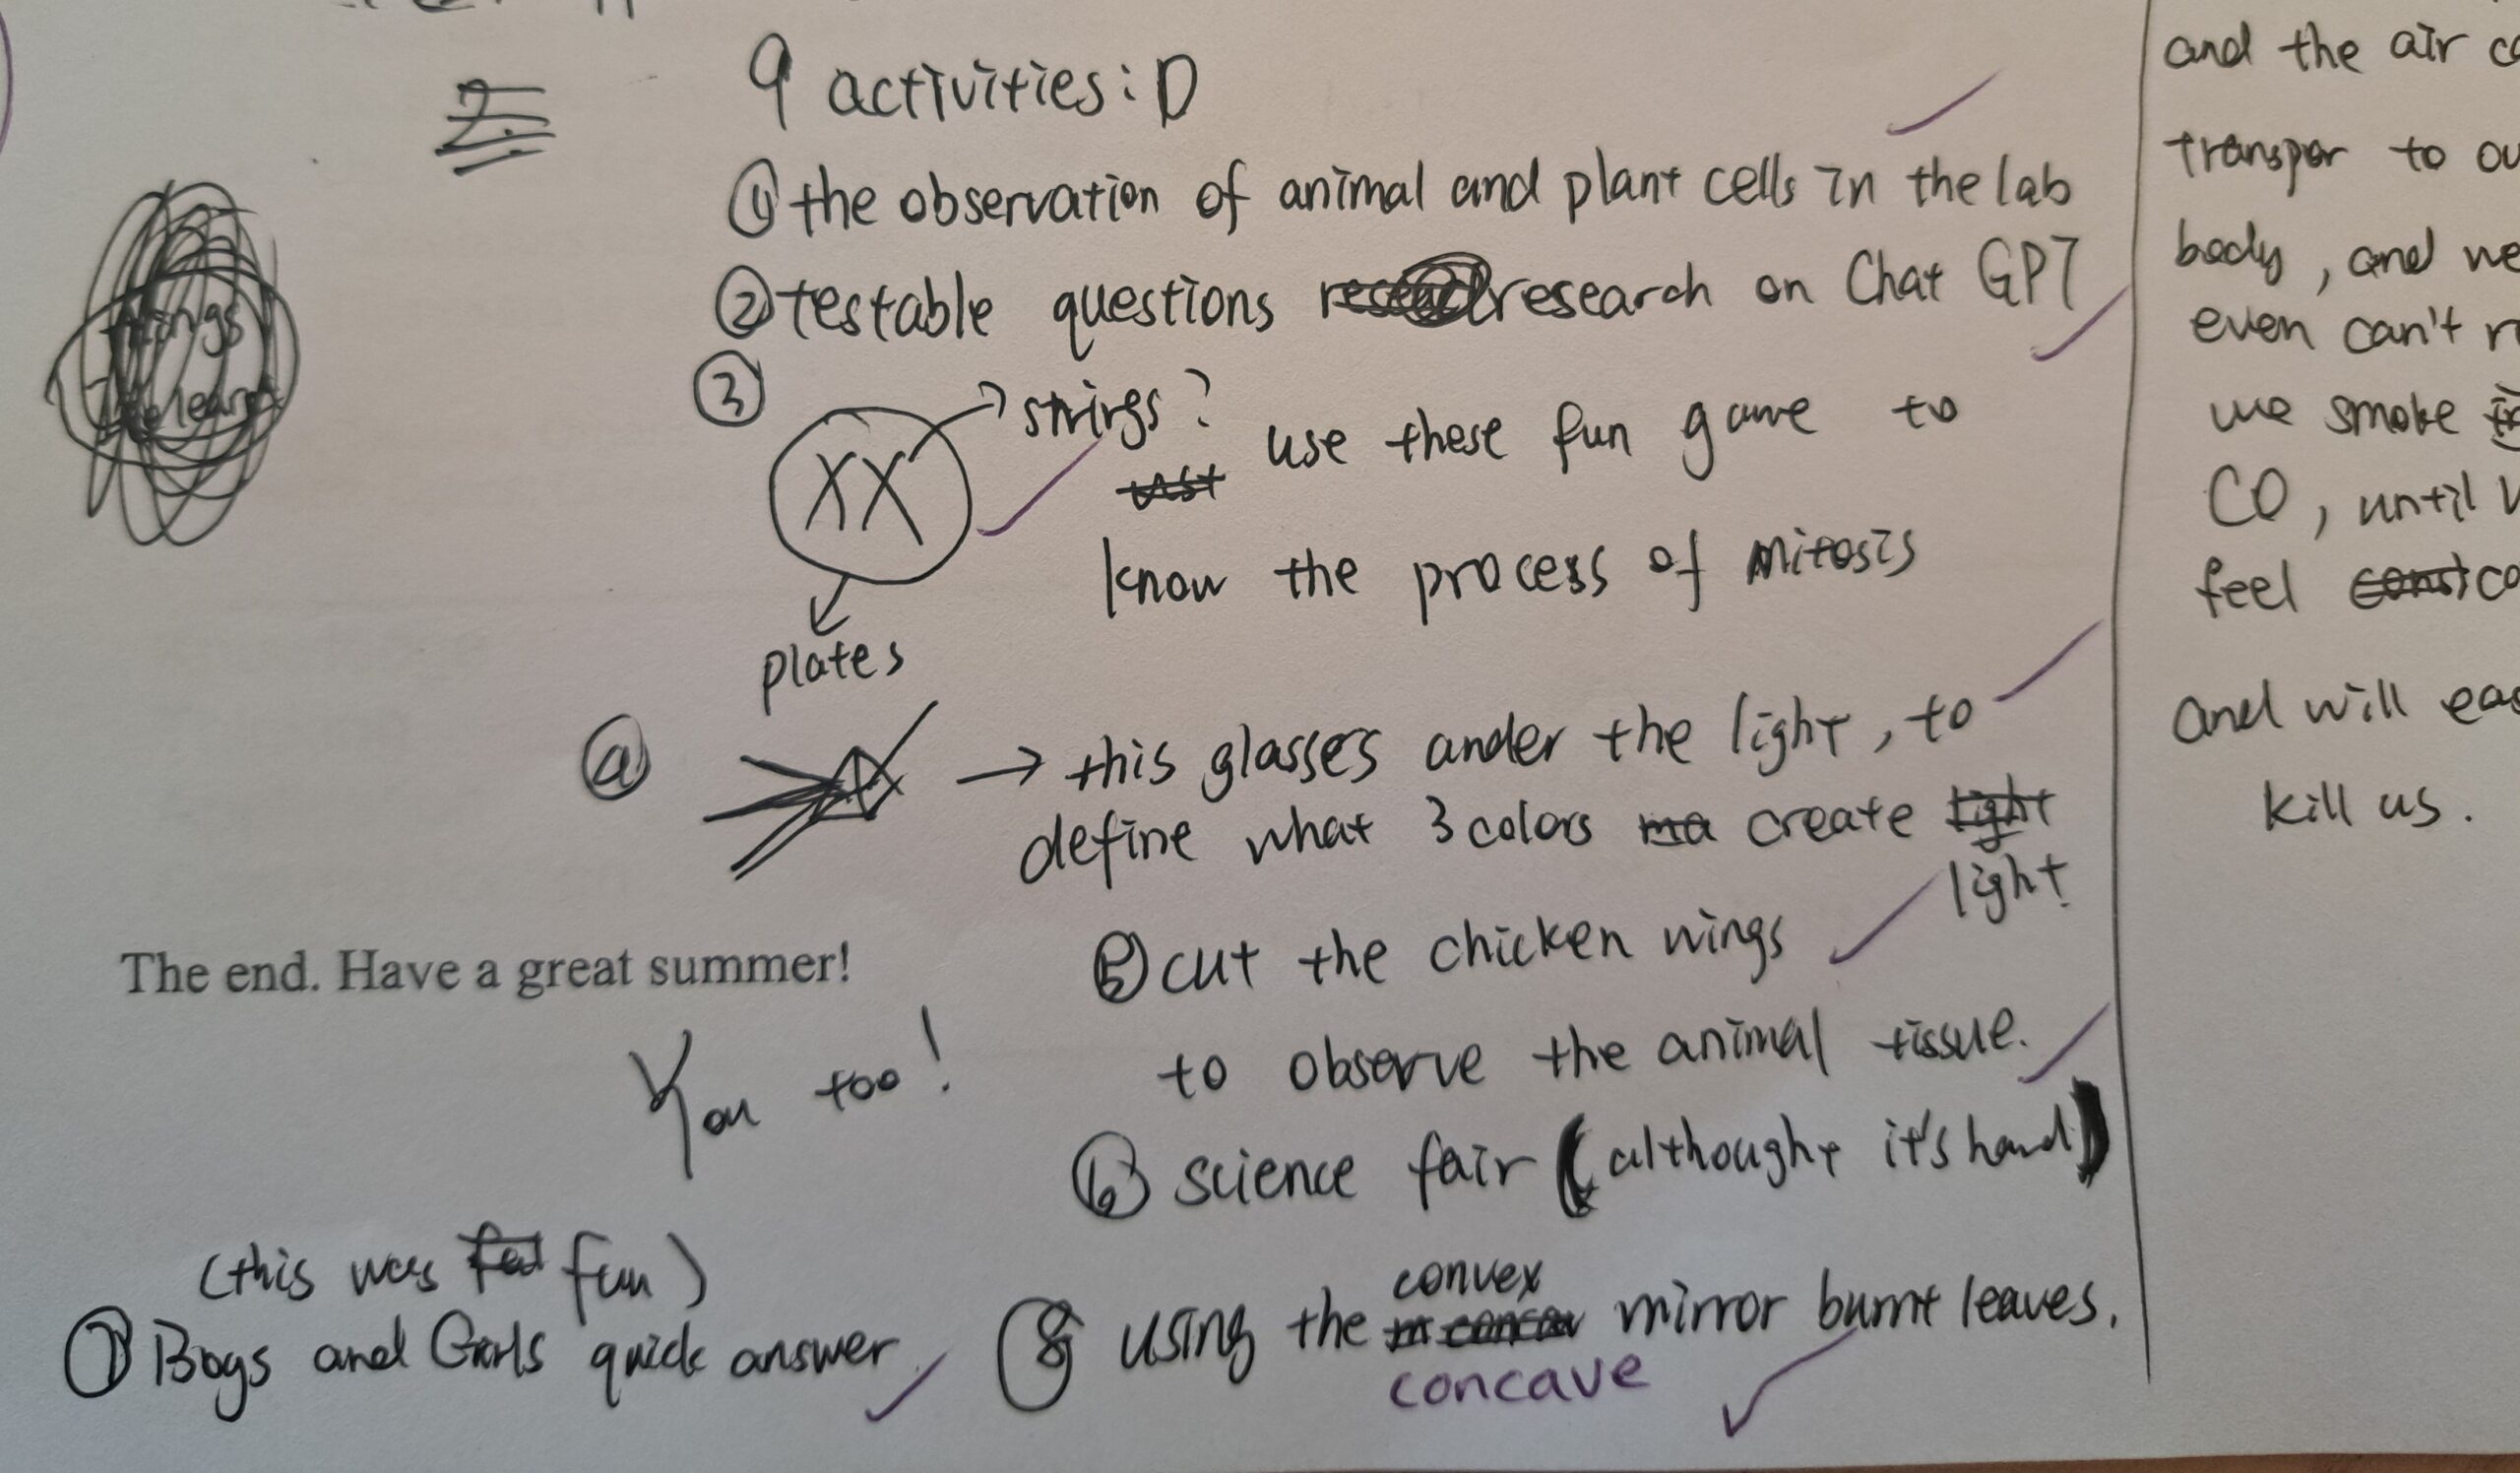 2.
9 activities: D
① the observation of animal and plant cells in the lab
② testable questions research on Chat GPT
③
strings?
XX
use these fun game to
know the process of mitosis
plates
④
→ this glasses under the light, to
define what 3 colors create
light
⑤ cut the chicken wings
to observe the animal tissue.
⑥ science fair (althought it's hard)
The end. Have a great summer!
You too!
(this was fun)
⑦ Boys and Girls quick answer
convex
⑧ using the mirror burnt leaves.
concave
things
we learn
and the air
transpor to
body, and we
even can't
we smoke
CO, until
feel
and will
kill us.